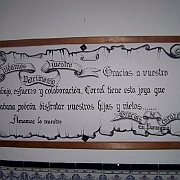 Cuidamos Nuestro
Patrimonio Gracias a vuestro
trabajo, esfuerzo y colaboración. Torral tiene esta joya que
mañana podrán disfrutar vuestros hijos y nietos......
Amamos lo nuestro Gracias de corazón